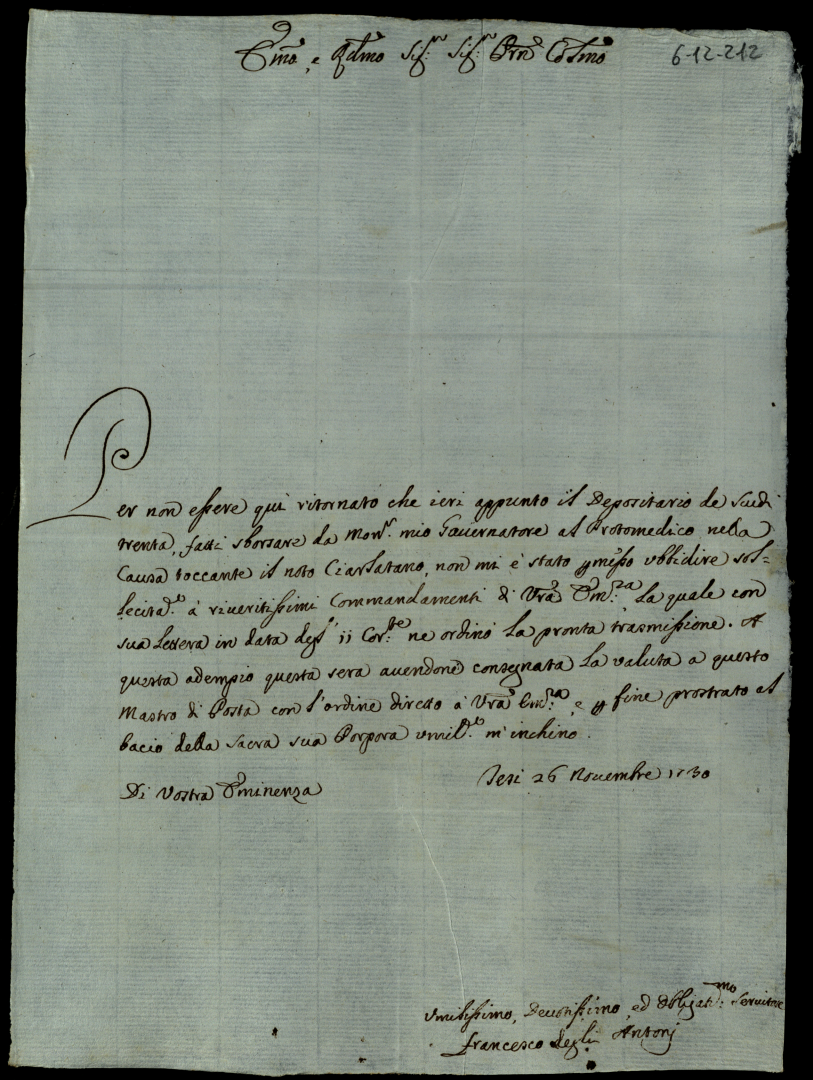 Em̃o, e Rd̃mo Sig.re Sig.re Prñ Cõlmo
6-12-212
Per non essere quì ritornato che ieri appunto il Depositario de Scudi
trenta, fatti sborsare da Mon.r mio Gouernatore al Protomedico nella
Causa toccante il noto Ciarlatano, non mi è stato p̱messo vbbidire sol=
lecitam.e à riueritissimi Commandamenti di Vrã Em̃.za La quale con
sua Lettera in data degl' 11 Cor.te ne ordinò La pronta trasmissione. A
questa adempio questa sera auendone consegnata La valuta a questo
Mastro di Posta con l'ordine diretto à Vrã Em̃.za, e p̱ fine prostrato al
bacio della sacra sua Porpora vmilm.e m'inchino.
Di Vostra Eminenza
Jesi 26 Nouembre 1730
Vmilissimo, Deuotissimo, ed Obligatis.mo Seruitore
Francesco degli Antonj